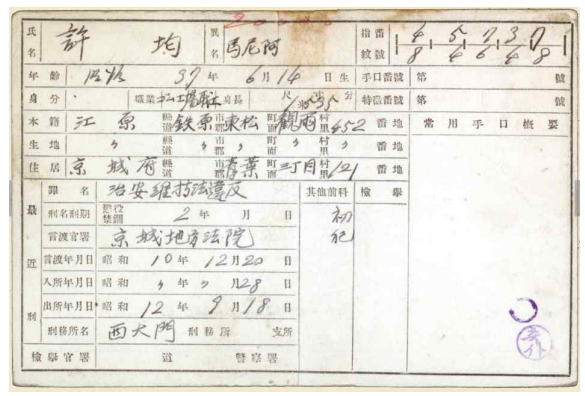 氏名 許均 異名 馬尼阿 指紋番號 4 5 7 3 7 / 8 4 6 4 8
年齡 明治 37年 6月 14日生 手口番號 第 號
身分 職業 身長 尺 寸 分 特徵番號 第 號
本籍 江原 縣道 鉄原 市郡 東松 町面 觀雨 村里 452 番地 常用手口槪要
生地 〃 縣道 〃 市郡 〃 町面 〃 村里 〃 番地
住居 京城府 縣道 市郡 青葉 町面 三丁目 村里 121 番地
最近刑
罪名 治安維持法違反 其他前科 檢擧
刑名刑期 懲役 禁錮 2年 月 日 初犯
言渡官署 京城地方法院
言渡年月日 昭和 10年 12月 20日
入所年月日 昭和 〃年 〃月 28日
出所年月日 昭和 12年 9月 18日
刑務所名 西大門 刑務所 支所
檢擧官署 道 警察署